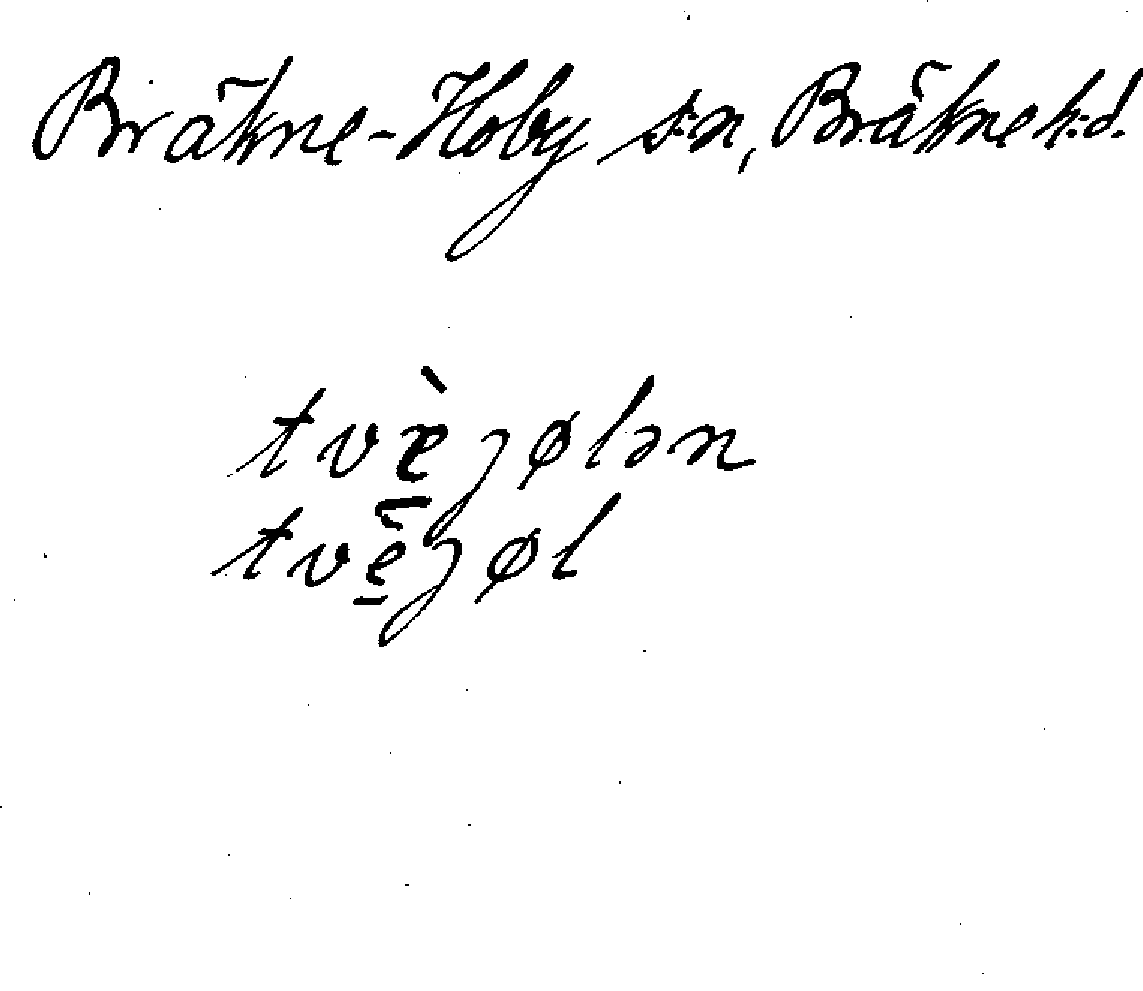 Bräkne-Hoby s:n, Bräkne h:d.
tvæ̠̀jølən
tvè̠jøl